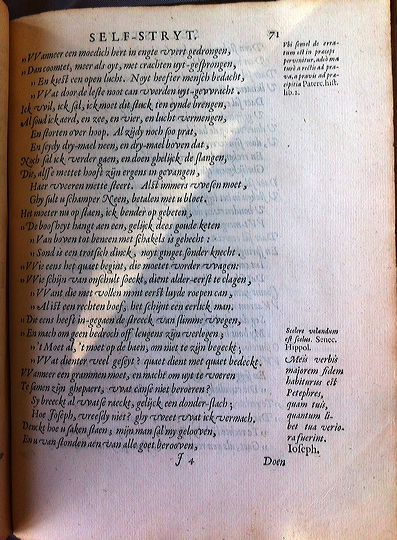 SELF-STRYT. 71
„ VVanneer een moedich hert in engte vvert gedrongen,
„ Dan coomtet, meer als oyt, met crachten uyt-gesprongen,
„ En kiest een open lucht. Noyt heefter mensch bedacht,
„ VVat door de leste noot can vverden uyt-gevvracht.
Ick vvil, ick sal, ick moet dit stuck ten eynde brengen,
Al sond ick aerd, en zee, en vier, en lucht vermengen,
En storten over hoop. Al zijdy noch so prat,
En seydy dry-mael neen, en dry-mael boven dat,
Noch sal ick verder gaen, en doen ghelijck de slangen,
Die, alsse mettet hooft zijn ergens in gevangen,
Haer vveeren mette steert. Alst immers vvesen moet,
Ghy sult u schamper Neen, betalen met u bloet.
Het moeter nu op staen, ick bender op gebeten,
„ De boosheyt hangt aen een, gelijck dees goude keten
„ Van boven tot beneen met schakels is gehecht:
„ Sond is een trotsich dinck, noyt ginget sonder knecht.
„ VVie eens het quaet begint, die moetet vorder vvagen:
„ VVie schijn van onschult soeckt, dient alder-eerst te clagen,
„ VVant die met vollen mont eerst luyde roepen can,
„ Al ist een rechten boef, het schijnt een eerlick man.
„ Die eens heeft in-gegaen de streeck van slimme vvegen,
„ En mach om geen bedroch oft leugens zijn verlegen;
„ 't Moet al, 't moet op de baen, om niet te zijn begeckt;
„ VVat dienter veel geseyt? quaet dient met quaet bedeckt.
VVanneer een grammen moet, en macht om uyt te voeren
Te samen zijn ghepaert, vvat canse niet beroeren?
Sy breeckt al vvatse raeckt, gelijck een donder-slach;
Hoe Joseph, vreesdy niet? ghy vveet vvat ick vermach,
Denckt hoe u saken staen; mijn man sal my gelooven,
En u van stonden aen van alle goet berooven,
J 4 Doen
Vbi semel de erratum
est in praeceps
pervenitur, adeò natura
à rectis ad prava,
a pravis ad praecipitia
Paterc. hist.
lib. 2.
Scelere velandum
est scelus. Senec.
Hippol.
Meis verbis
majorem fidem
habiturus est
Petephres,
quam tuis,
quantum libet
tua vera
fuerint.
Ioseph,